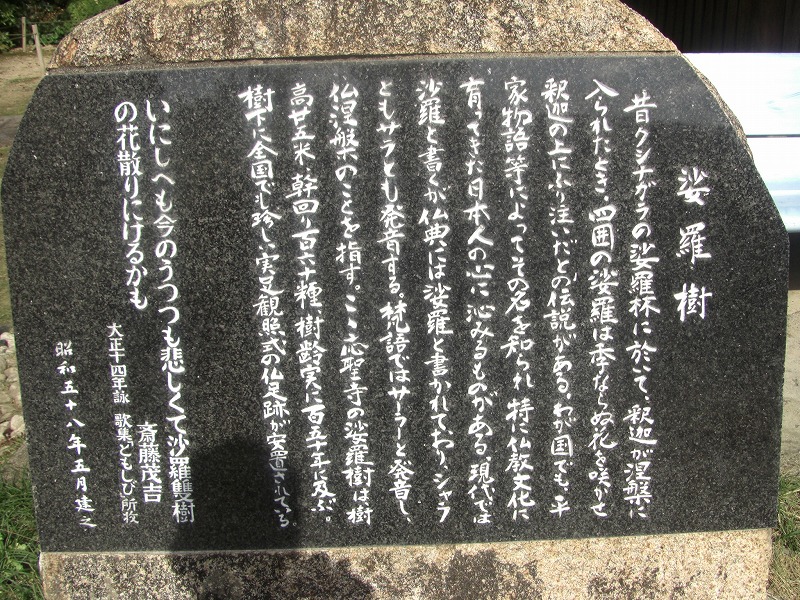 娑羅樹
昔クシナガラの娑羅林に於いて、釈迦が涅槃に
入られたとき、四囲の娑羅は季ならぬ花を咲かせ
釈迦の上にふり注いだとの伝説がある。わが国でも、平
家物語等によってその名を知られ、特に仏教文化に
育ってきた日本人の心に沁みるものがある。現代では
沙羅と書くが仏典には娑羅と書かれており、シャラ
ともサラとも発音する。梵語ではサーラーと発音し、
仏涅槃のことを指す。ここ応聖寺の娑羅樹は樹
高廿五米、幹回り百六十糎、樹齢実に百五十年に及ぶ。
樹下に全国でも珍しい実足観照式の仏足跡が安置されている。
いにしへも今のうつつも悲しくて沙羅雙樹
の花散りにけるかも
斎藤茂吉
大正十四年詠 歌集ともしび所收
昭和五十八年五月建之